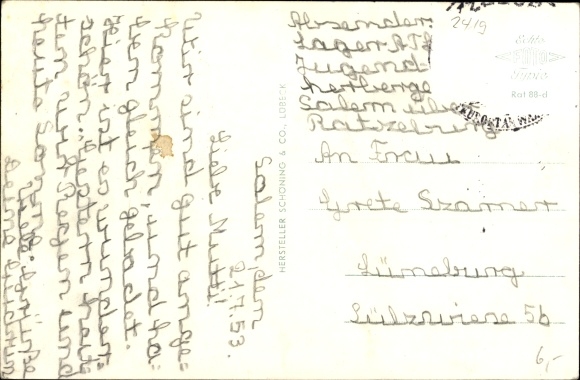 Salem, den
21.7.53.
Liebe Mutti!
Wir sind gut ange=
kommen, und ha=
ben gleich gebadet.
Hier ist es wunder=
schön. Gestern hat=
ten wir Regen und
heute Sonne.
Viele Grüße
Deine
HERSTELLER SCHÖNING & CO., LÜBECK
Absender
Lager
Jugend
herberge
Salem über
Ratzeburg
2419
Echte
Rat 88-d
An Frau
Grete Szamer
Lüneburg
Sülzwiese 5b
6,-